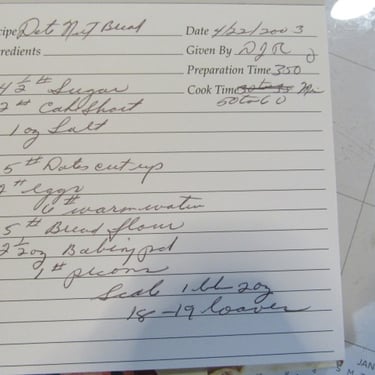 cipe Date Nut Bread Date 4/22/2003
gredients Given By DJR
Preparation Time 350
Cook Time 30 to 35 Min
50 to 60
4 1/2 # Sugar
2 # Cake Short
1 oz Salt
5 # Dates cut up
2 # eggs
6 # warm water
5 # Bread flour
2 1/2 oz Baking pd
1 # pecans
Scale 1 lb 2oz
18 - 19 loaves
JAN
S M